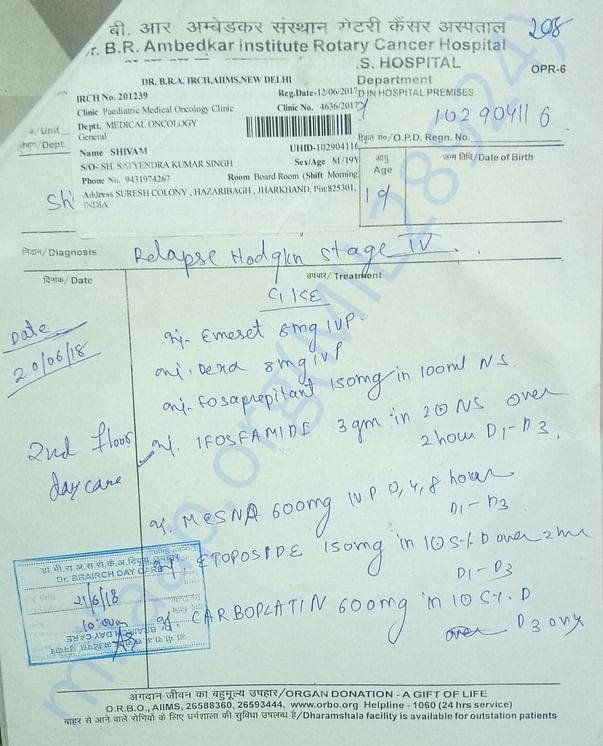 बी. आर. अम्बेडकर संस्थान रोटरी कैंसर अस्पताल
208
r. B.R. Ambedkar Institute Rotary Cancer Hospital
.S. HOSPITAL
OPR-6
DR. B.R.A. IRCH,AIIMS,NEW DELHI
Department
IRCH No. 201239
Reg.Date-12/06/2017
D IN HOSPITAL PREMISES
Clinic Paediatric Medical Oncology Clinic
Clinic No. 4636/2017
102904116
Deptt. MEDICAL ONCOLOGY
General
/Unit
/Dept.
O.P.D. Regn. No.
Name SHIVAM
UHID-102904116
S/O- SH. SATYENDRA KUMAR SINGH
Sex/Age M/19Y
Phone No. 9431974267
Room Board Room (Shift Morning
Address SURESH COLONY , HAZARIBAGH , JHARKHAND, Pin:825301,
INDIA
Shi
आयु
Age
19
जन्म तिथि/Date of Birth
निदान/Diagnosis
Relapse Hodgkn stage IV
दिनांक/Date
उपचार/Treatment
Date
20/06/18
2nd floor
day care
inj. Emeset 8mg IVP.
inj. Dexa 8mg IVP
inj. Fosaprepitant 150mg in 100ml NS.
inj. IFOSFAMIDE 3gm in 20 NS over
2 hour D1-D3.
inj. MESNA 600mg IVP 0, 4, 8 hour
D1-D3
ETOPOSIDE 150mg in 10 5% D over 2
D1-D3
CARBOPLATIN 600mg in 10 5% D
over D3 only
Dr. BRAIRCH DAY CARE
21/6/18
Dr. BRAIRCH DAY CARE
maap.org(MIL289247)
अंगदान-जीवन का बहुमूल्य उपहार/ORGAN DONATION - A GIFT OF LIFE
O.R.B.O., AIIMS, 26588360, 26593444, www.orbo.org Helpline - 1060 (24 hrs service)
बाहर से आने वाले रोगियों के लिए धर्मशाला की सुविधा उपलब्ध है/Dharamshala facility is available for outstation patients